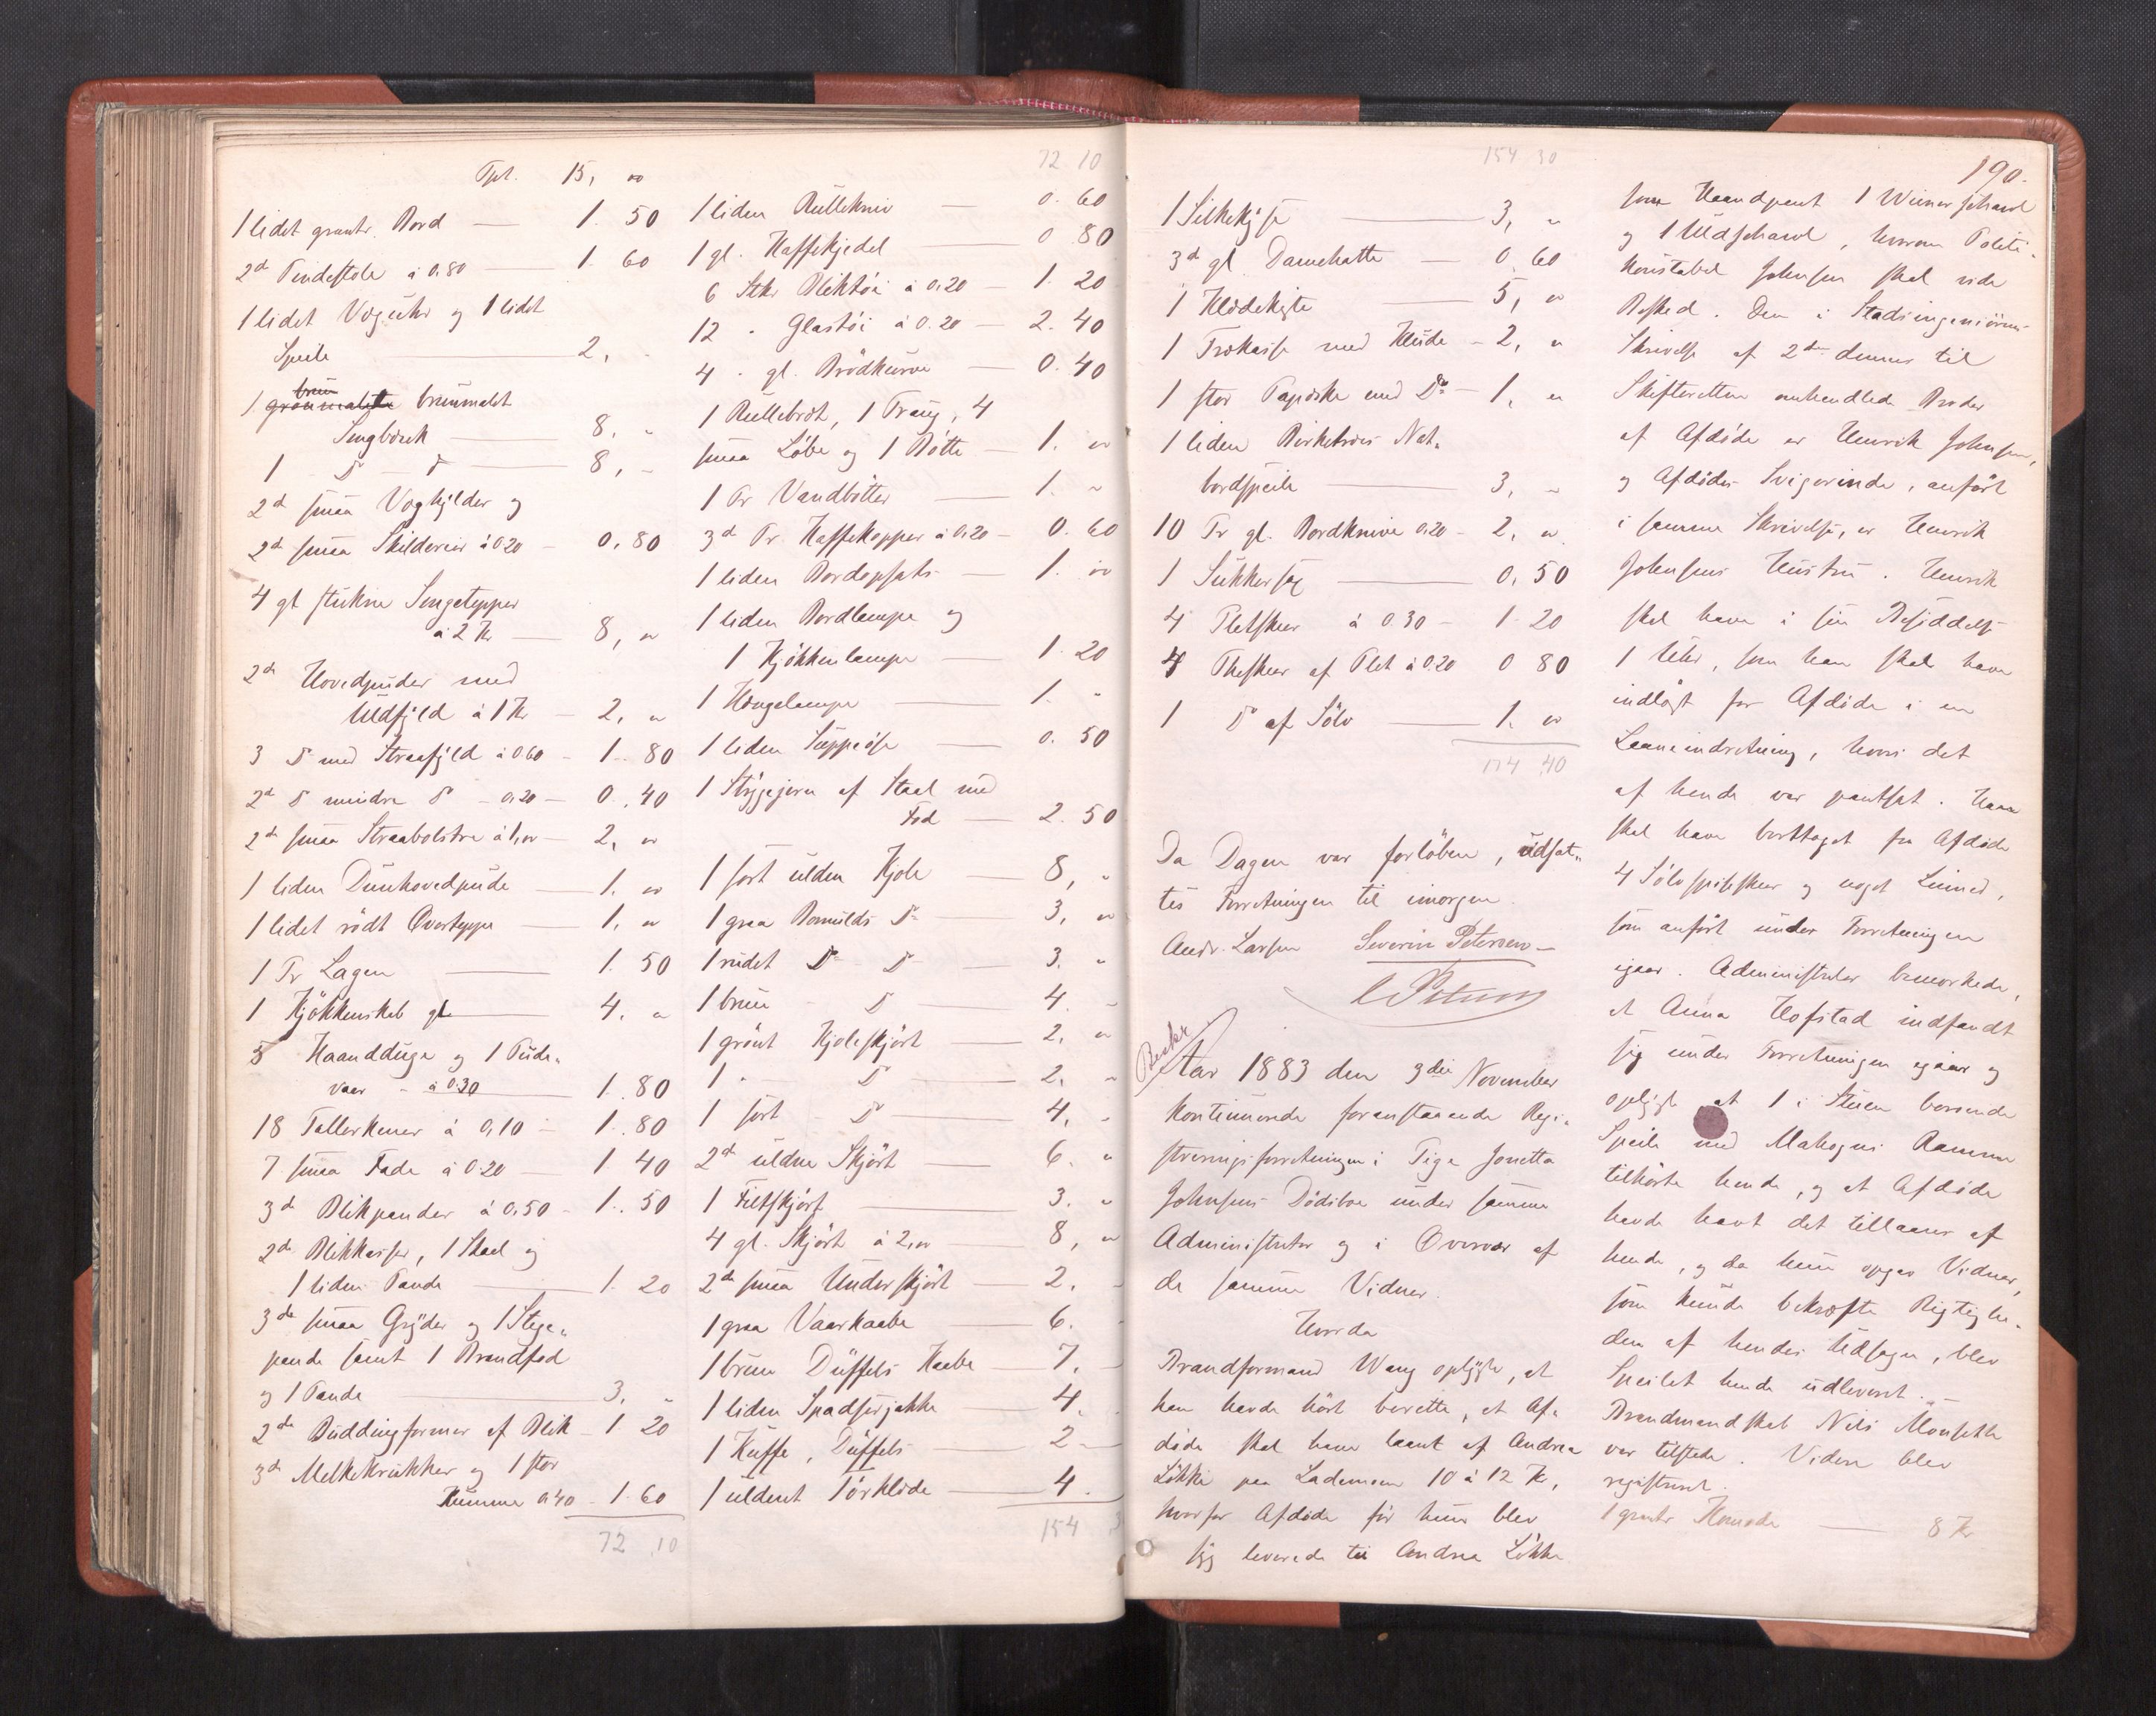 Tpt. 15, "
1 lidet grantr. Bord — 1. 50
2de Pindestole à 0.80 — 1. 60
1 lidet Vægtuhr og 1 lidet
Speile — 2, "
brun
1 grönmalede brunmalet
Sengbænk — 8, "
1 Do – Do — 8, "
2de smaa Væghylder og
2de smaa Skilderier à 0.20 — 0. 80
4 gl stukne Sengetepper
à 2 Kr — 8, "
2de Hovedpuder med
Uldfyld à 1 Kr — 2, "
3 Do med Straafyld à 0.60 — 1. 80
2de Do mindre Do – 0.20 — 0. 40
2de smaa Straabolstre à 1," — 2, "
1 liden Dunhovedpude — 1. "
1 lidet rödt Overteppe — 1, "
1 Pr Lagen — 1. 50
1 Kjökkenskab gl — 4. "
5 Haandduge og 1 Pude-
vaar – à 0.30 — 1. 80
18 Tallerkener à 0,10 — 1. 80
7 smaa Fade à 0.20 — 1 40
3de Blikpander à 0.50 — 1. 50
2de Blikkasser, 1 Skaal og
1 liden Pande — 1. 20
3de smaa Gryder og 1 Stege-
pande samt 1 Brandfad
og 1 Pande — 3. "
2de Buddingformer af Blik — 1 20
3de Melkekrukker og 1 stor
Kumme 0.40 — 1. 60
72. 10
72 10
1 liden Rullekniv — 0. 60
1 gl. Kaffekjedel — 0 80
6 Stkr Bliktöi à 0.20 — 1. 20
12 " Glastöi à 0.20 — 2. 40
4 " gl. Brödkurve — 0. 40
1 Rullebræt, 1 Traug, 4
smaa Löbe og 1 Bötte — 1. "
1 Pr Vandbötter — 1. "
3de Pr. Kaffekopper à 0,20 — 0. 60
1 liden Bordopsats — 1. "
1 liden Bordlampe og
1 Kjökkenlampe — 1. 20
1 Hængelampe — 1. "
1 liden Suppeöse — 0. 50
1 Strygejern af Staal med
Fod — 2. 50
1 sort ulden Kjole — 8, "
1 graa Bomulds Do — 3, "
1 rudet Do – Do — 3. "
1 brun – Do — 4. "
1 grönt Kjoleskjört — 2. "
1 " Do — 2. "
1 sort – Do — 4. "
2de uldne Skjört — 6. "
1 Filtskjört — 3. "
4 gl. Skjört à 2," — 8, "
2de smaa Underskjört — 2. "
1 graa Vaarkaabe — 6. "
1 brun Düffels Kaabe — 7. "
1 liden Spadserjakke — 4.
1 Kuffe, Düffels — 2 –
1 uldent Törklæde — 4.
154 3
154 30
1 Silkekyse — 3, "
3de gl Damehatte — 0. 60
1 Klædekiste — 5, "
1 Trækasse med Klude — 2, "
1 stor Papæske med Do — 1, "
1 liden Birketræs Nat-
bordspeile — 3, "
10 Pr gl. Bordknive 0.20 — 2, "
1 Sukkersax — 0. 50
4 Pletskeer à 0.30 — 1 20
4 Theskeer af Plet à 0.20 0 80
1 Do af Sölv — 1. "
174 40
Da Dagen var forlöben, udsat-
tes Forretningen til imorgen.
Andr. Larsen Severin Petersen
C Petersen
Beskr
Aar 1883 den 3die November
kontinuerede foranstaaende Regi-
streringsforretningen i Pige Jonetta
Johnsens Dödsboe under samme
Administrator og i Overvær af
de samme Vidner.
Hvorda
Brandformand Wang oplyste, at
han havde hört berette, at Af-
döde skal have laant af Andrea
Lökke paa Lademoen 10 à 12 Kr,
hvorfor Afdöde för hun blev
syg leverede til Andrea Lökke
190.
som Haandpant 1 Wienerschavl
og 1 Uldschavl, hvorom Politi-
konstabel Johnsen skal vide
Besked. Den i Stadsingeniörens
Skrivelse af 2den dennes til
Skifteretten omhandlede Broder
af Afdöde er Henrik Johnsen,
og Afdödes Svigerinde, anfört
i samme Skrivelse, er Henrik
Johnsens Hustru. Henrik
skal have i sin Besiddelse
1 Uhr, som han skal have
indlöst for Afdöde i en
Laaneindretning, hvori det
af hende var pantsat. Han
skal have borttaget fra Afdöde
4 Sölvspiseskeer og noget Linned,
som anfört under Forretningen
igaar. Administrator bemærkede,
at Anna Hofstad indfandt
sig under Forretningen igaar og
oplyste at 1 i Stuen værende
Speile med Mahogni Ramme
tilhörte hende, og at Afdöde
havde havt det tillaans af
hende, og da hun opgav Vidner,
som kunde bekræfte Rigtighe-
den af hendes Udsagn, blev
Speilet hende udleveret. –
Brandmandskab Nils Monsethe
var tilstede. Videre blev
registreret.
1 grantr Komode — 8 Kr